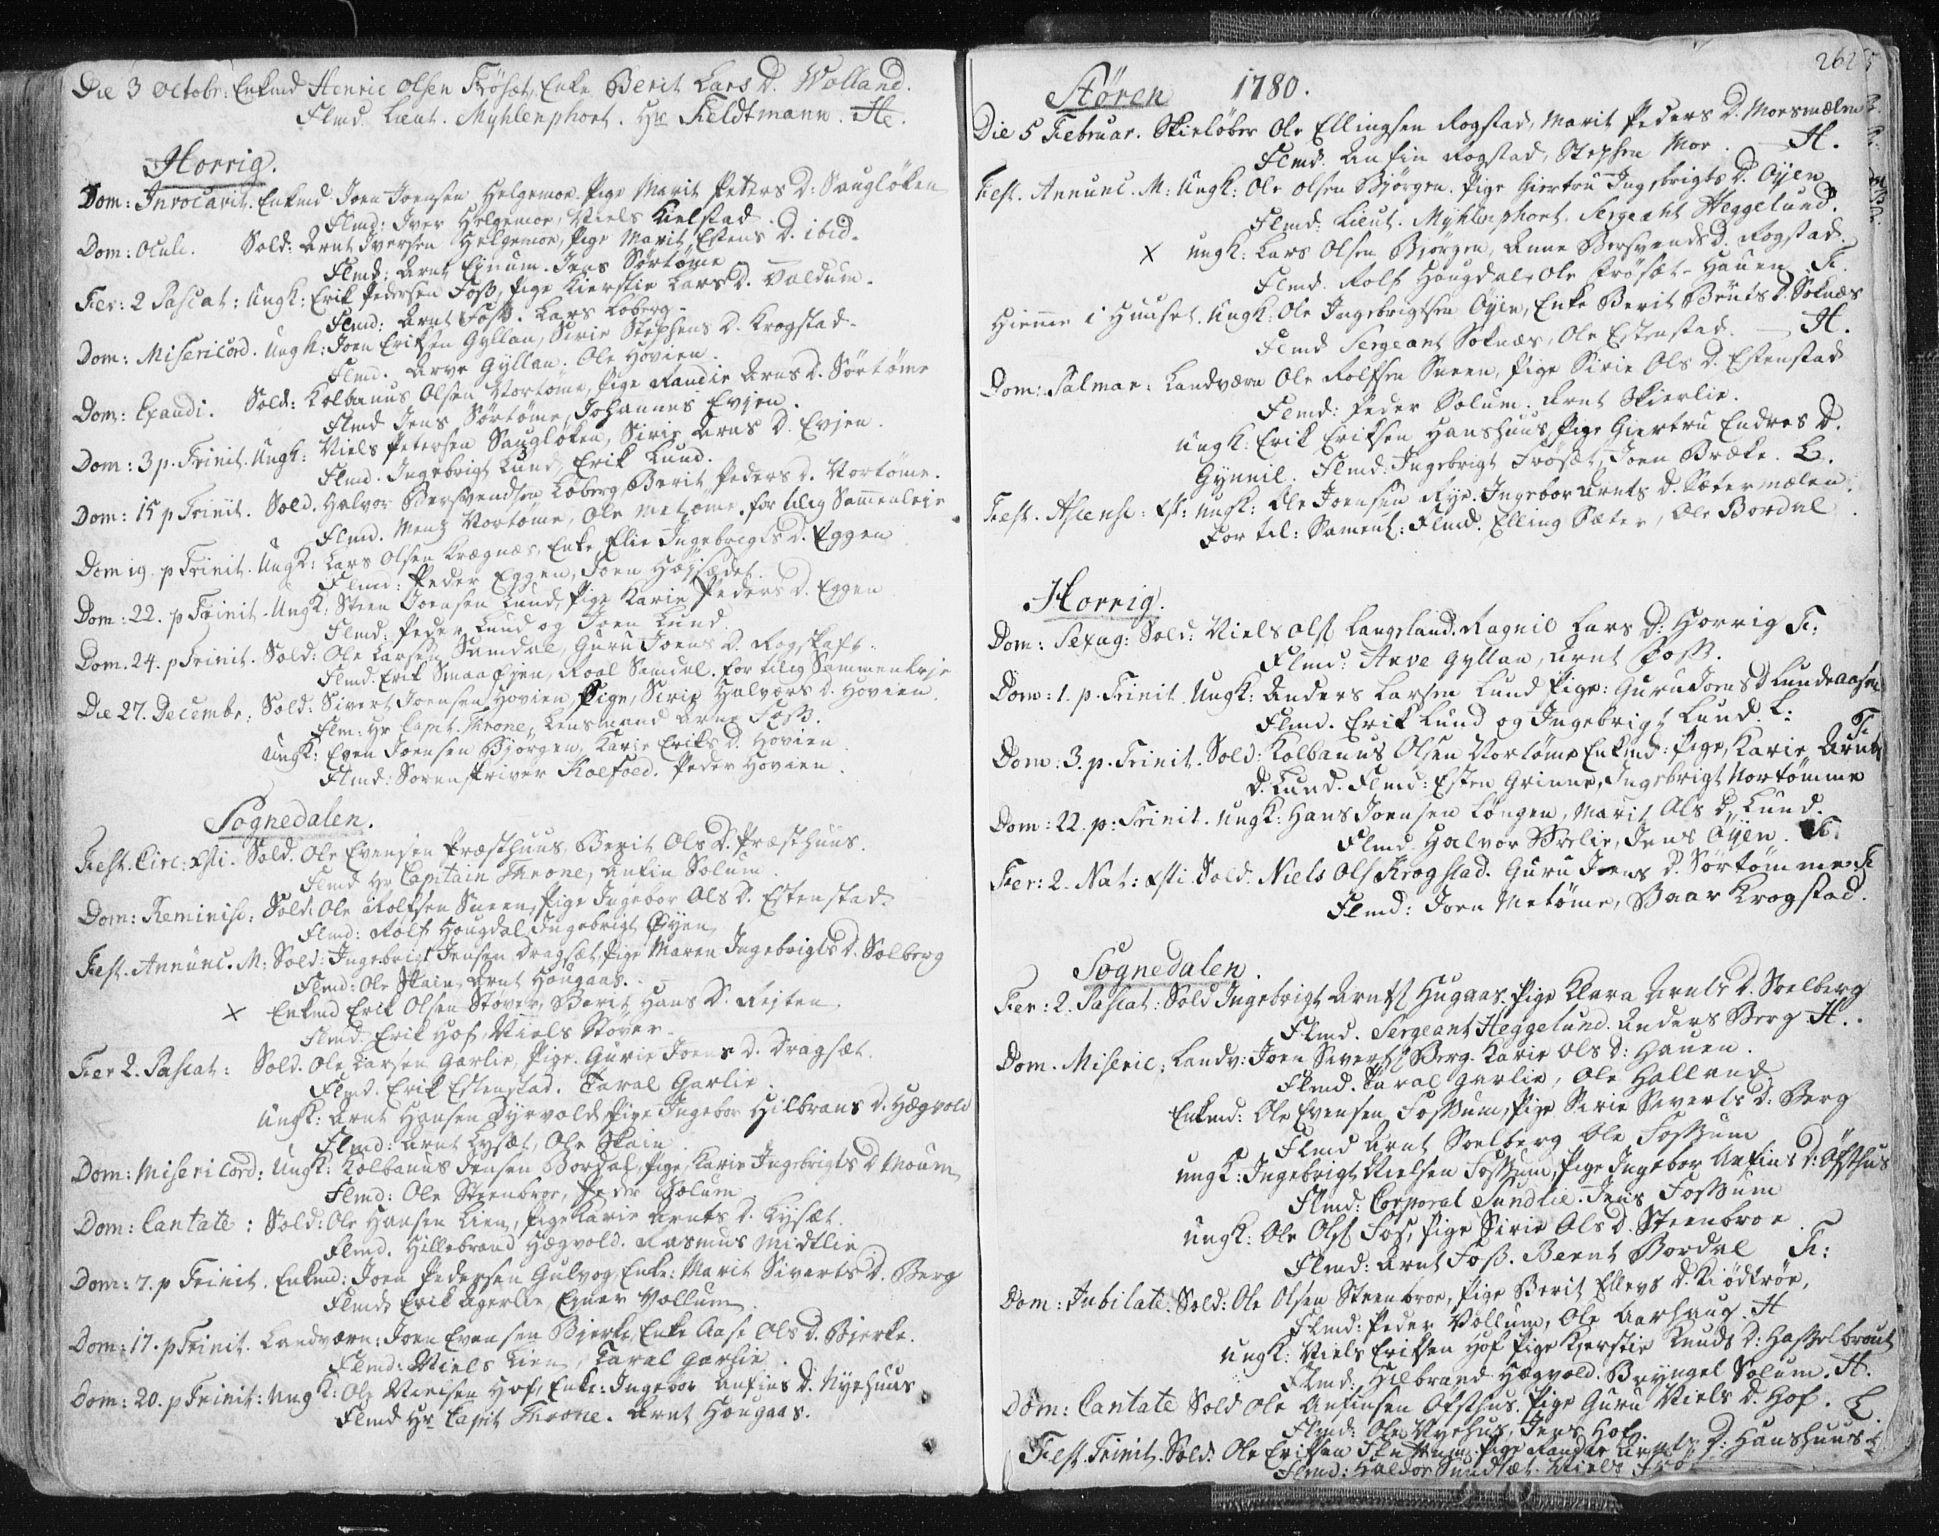 Die 3 Octobr: Enkmd Henric Olsen Frøsæt, Enke Berit Lars D. Wolland.
Flmd. Lieut. Myhlenphort. Hr Feldtmann. He.
Horrig.
Dom: Invocavit. Enkmd Joen Joensen Helgemoe. Pige Marit Peters D: Saugløken
Flmd: Iver Helgemoe, Niels Kielstad.
Dom: Oculi. Sold: Arnt Iversen Helgemoe, Pige Marit Estens D. ibid.
Flmd: Arnt Ejnum. Jens Sørtøme
Fer: 2 Pascat: Ungk: Erik Pedersen Foss, Pige Kierstie Lars D. Valdum.
Flmd: Arnt Foss. Lars Loberg.
Dom: Misericord. Ungk: Joen Eriksen Gyllan, Sirie Stephens D. Krogstad.
Flmd. Arve Gyllan. Ole Hovien.
Dom: Exaudi. Sold: Kolbanus Olsen Nortøme, Pige Randie Arns D. Sørtøme
Flmd Jens Sørtøme, Johannes Evjen.
Dom: 3 p. Trinit. Ungk: Niels Petersen Saugløken, Sirie Arns D. Evjen.
Flmd. Ingebrigt Lund, Erik Lund.
Dom: 15 p Trinit. Sold. Halvor Bersvendsen Loberg, Berit Peders D. Nortøme.
Flmd. Mentz Nortøme, Ole Metøme. for tilig Sammenleje
Dom 19. p Trinit. Ungk: Lars Olsen Krægnæs, Enke Elie Ingebrigts D. Eggen
Flmd: Peder Eggen, Joen Højsædet.
Dom: 22. p Trinit. Ungk: Steen Joensen Lund, Pige Karie Peders D. Eggen
Flmd: Peder Lund og Joen Lund.
Dom. 24. p Trinit. Sold: Ole Larsen Samdal, Guru Joens D. Rogskaft.
Flmd. Erik Smaaejen, Roal Samdal. for tilig Sammenleje
Die 27. Decembr: Sold: Sivert Joensen Hovien, Pige, Sirie Halvors D. Hovien.
Flm: Hr Capit. Throne, Lensmand Arne Foss.
Ungk: Even Joensen Bjørgen, Karie Eriks D. Hovien
Flmd: Sorenskriver Koefoed. Peder Hovien.
Sognedalen.
Fest. Circ: Xsti. Sold. Ole Evensen Præsthuus, Berit Ols D. Præsthuus.
Flmd Hr Capitain Throne, Anfin Solum.
Dom: Reminisc: Sold: Ole Rolfsen Sneen, Pige Ingebor Ols D. Estenstad.
Flmd: Rolf Hougdal, Ingebrigt Øyen,
Fest. Annunc. M: Sold: Ingebrigt Jensen Dragsæt, Pige Maren Ingebrigts D. Solberg
Flmd: Ole Skain, Arnt Hougaas.
X Enkmd Erik Olsen Støver, Berit Hans D. Rejten.
Flmd. Erik Hof, Niels Støver.
Fer 2. Pascat: Sold. Ole Larsen Garlie, Pige. Gurie Joens D. Dragsæt.
Flmd. Erik Estenstad. Taral Garlie.
Ungk: Arnt Hansen Fyrvold, Pige Ingebor Hilbrans D. Hægvold
Flmd: Arnt Lysæt, Ole Skain.
Dom: Misericord: Ungk: Kolbanus Jensen Bordal, Pige, Karie Ingebrigts D Moum
Flmd: Ole Steenbroe, Peder Solum
Dom: Cantate: Sold: Ole Hansen Lien, Pige Karie Arnts D. Lysæt.
Flmd. Hillebrand Hægvold. Rasmus Midtlie
Dom: 7. p Trinit. Enkmd: Joen Pedersen Gulvog, Enke: Marit Siverts D. Berg
Flmd, Erik Agerlie Ejner Vollum
Dom: 17. p Trinit. Landværn: Joen Evensen Bjerke, Enke Aase Ols D. Bjerke.
Flmd: Niels Lien, Taral Garlie.
Dom: 20. p Trinit: Ungk: Ole Nielsen Hof, Enke: Ingebor Anfins D. Nyehuus
Flmd Hr Capit Throne. Arnt Hougaas.
262
Støren 1780.
Die 5 Februar. Skieløber Ole Ellingsen Rogstad, Marit Peders D. Morsmælen
Flmd. Anfin Rogstad, Stephen Mor. H.
Fest. Annunc. M: Ungk: Ole Olsen Bjørgen. Pige Giertru Ingebrigts D. Øyen
Flmd: Lieut. Myhlenphort. Sergeant Heggelund.
X Ungk: Lars Olsen Bjørgen, Anne Bersvends D. Rogstad.
Flmd. Rolf Hougdal, Ole Frøsæt-Hauen. F.
Hiemme i Huuset. Ungk: Ole Ingebrigtsen Øyen, Enke Berit Bernts D. Soknæs
Flmd Sergeant Soknæs, Ole Estenstad. H.
Dom: Palmar: Landværn Ole Rolfsen Sneen, Pige Sirie Ols D. Estenstad
Flmd: Peder Solum. Arnt Skierlie.
Ungk: Erik Eriksen Hanshuus, Pige Giertru Endres D.
Gynnil. Flmd: Ingebrigt Frøsæt, Joen Bræke. L.
Fest. Ascens: Xst: Ungk: Ole Joensen Rye. Ingebor Arnts D. Sætermælen.
For til: Sament: Flmd. Elling Sæter, Ole Bordal
Horrig.
Dom: Sexag: Sold: Niels Ols Langeland. Ragnil Lars D: Horrig F:
Flmd: Arve Gyllan, Arnt Foss.
Dom: 1. p. Trinit. Ungk: Anders Larsen Lund Pige: Guru Joens D Lundeaasen
Flmd. Erik Lund og Ingebrigt Lund. L:
Dom: 3. p. Trinit. Sold: Kolbanus Olsen Nortøme Enkmd: Pige, Karie Arnts
D. Lund. Flmd: Esten Grinne, Ingebrigt Nortømme
Dom: 22. p: Trinit. Ungk: Hans Joensen Løngen, Marit Ols D. Lund.
Flmd. Halvor Brelie, Jens Øyen. F:
Fer: 2. Nat: Xsti Sold. Niels Ols Krogstad. Guru Jens D. Sørtømme F
Flmd: Joen Metøme, Baar Krogstad.
Sognedalen.
Fer: 2. Pascat: Sold Ingebrigt Arnts Hugaas. Pige Klara Arnts D. Soelberg
Flmd. Sergeant Heggelund. Anders Berg H.
Dom. Miseric: Landv: Joen Siverts Berg. Karie Ols D: Hauen.
Flmd. Taral Garlie, Ole Halland
Enkmd: Ole Evensen Fossum, Pige Sirie Siverts D: Berg
Flmd Arnt Soelberg Ole Fossum
Ungk: Ingebrigt Nielsen Fossum, Pige Ingebor Anfins D: Ofsthus
Flmd: Corporal Sundlie. Jens Fossum
Ungk: Ole Ols Fos, Pige Sirie Ols D. Steenbroe.
Flmd: Arnt Foss. Bernt Bordal F:
Dom: Jubilate. Sold: Ole Olsen Steenbroe, Pige Berit Ellevs D. Kiødtrøe,
Flmd: Peder Vollum, Ole Aarhaug. H
Ungk: Niels Eriksen Hof Pige Kjerstie Knuds D: Hasselbrout
Flmd: Hilbrand Hægvold. Bryngel Solum. H.
Dom: Cantate Sold Ole Anfinsen Ofsthus, Pige Guru Niels D. Hof. L.
Flmd: Ole Nyehus, Jens Hof.
Fest. Trinit. Sold: Ole Eriksen Pige Randie D: Hanshuus
Flmd: Haldor Sundsæt. Niels